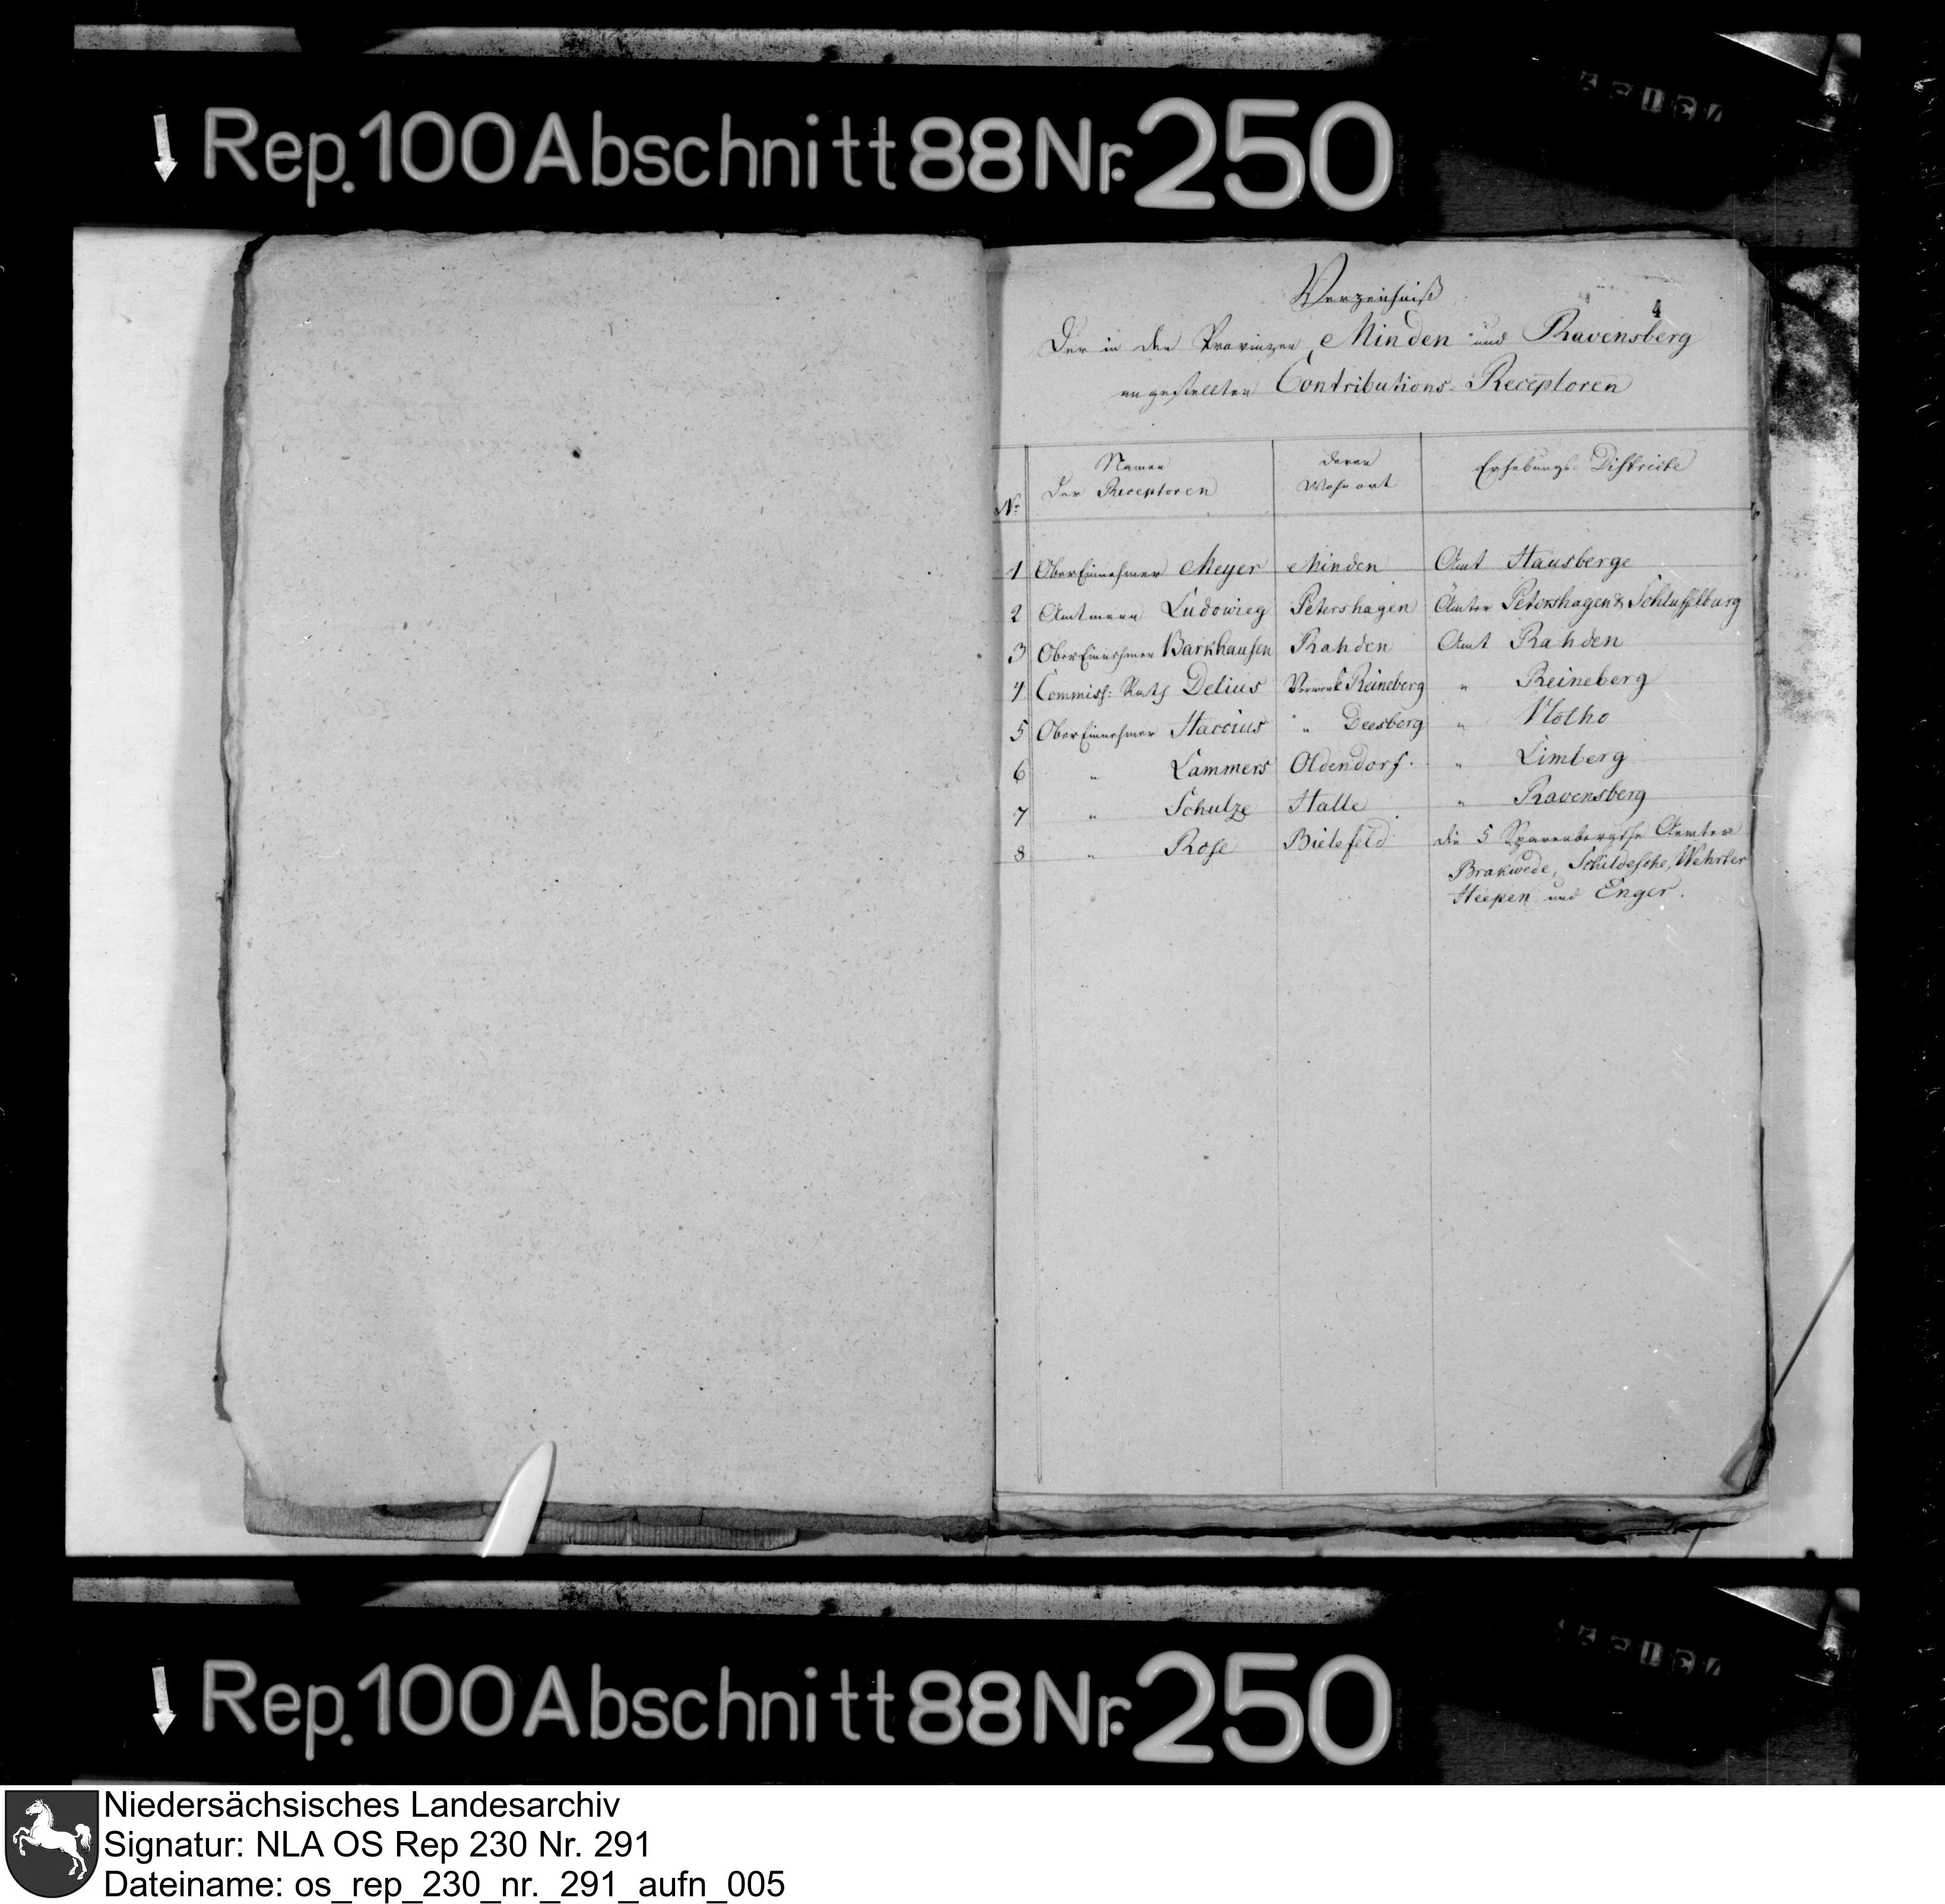 Rep. 100 Abschnitt 88 Nr. 250
4
Verzeichniß
Der in den Provinzen Minden und Ravensberg
angestellten Contributions-Receptoren
No Namen der Receptoren deren Wohnort Erhebungs-Districte
1 OberEinnehmer Meyer Minden Amt Hausberge
2 Amtmann Ludowieg Petershagen Ämter Petershagen & Schlüsselburg
3 OberEinnehmer Barkhausen Rahden Amt Rahden
4 Commiss: Rath Delius Reineberg " Reineberg
5 OberEinnehmer Haccius " Deesberg " Vlotho
6 " Lammers Oldendorf. " Limberg
7 " Schulze Halle " Ravensberg
8 " Rose Bielefeld die 5 Sparenbergsche Aemter
Brakwede, Schildesche, Wehrter
Heepen und Enger.
Rep. 100 Abschnitt 88 Nr. 250
Niedersächsisches Landesarchiv
Signatur: NLA OS Rep 230 Nr. 291
Dateiname: os_rep_230_nr._291_aufn_005